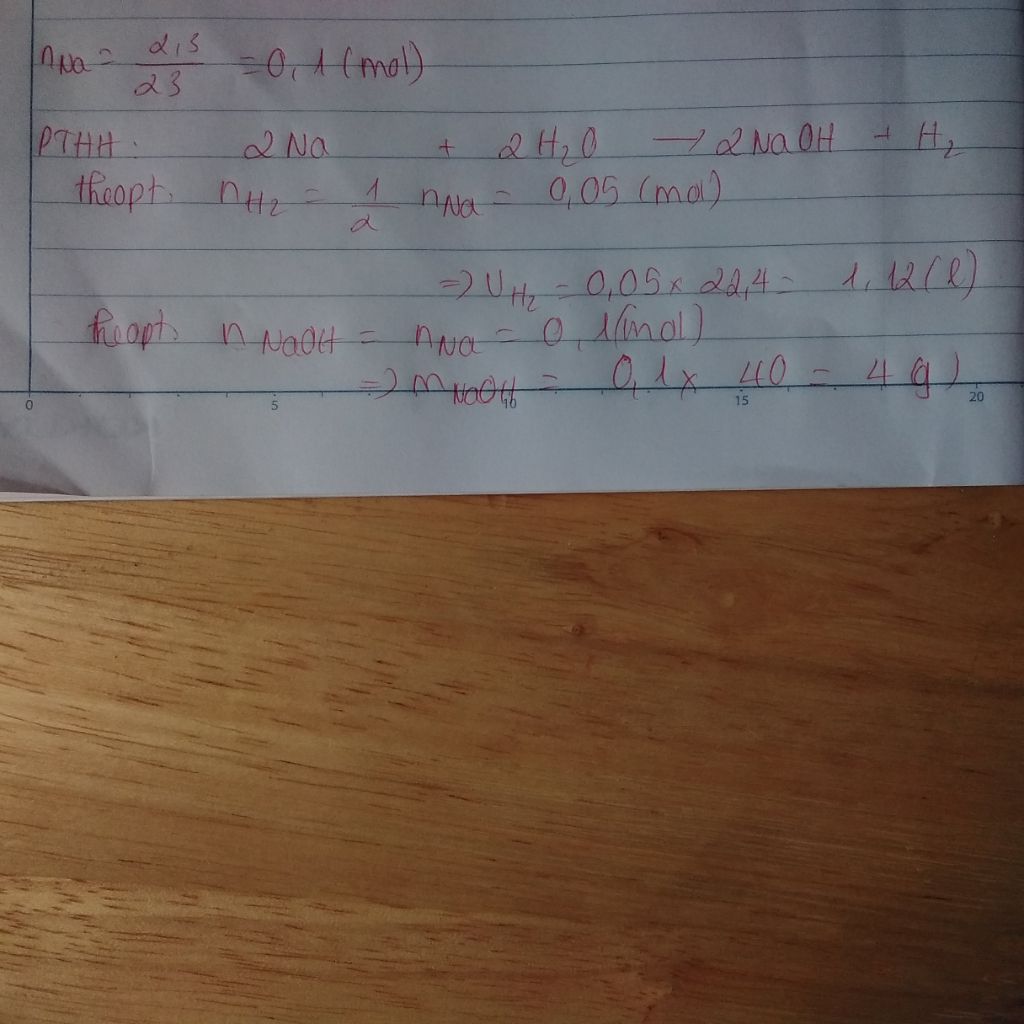 nNa = 2,3/23 = 0,1 (mol)
PTHH: 2Na + 2H₂O → 2NaOH + H₂
theo pt. nH₂ = 1/2 nNa = 0,05 (mol)
=> VH₂ = 0,05 x 22,4 = 1,12 (l)
theo pt. nNaOH = nNa = 0,1 (mol)
=> mNaOH = 0,1 x 40 = 4 g)
0 5 10 15 20